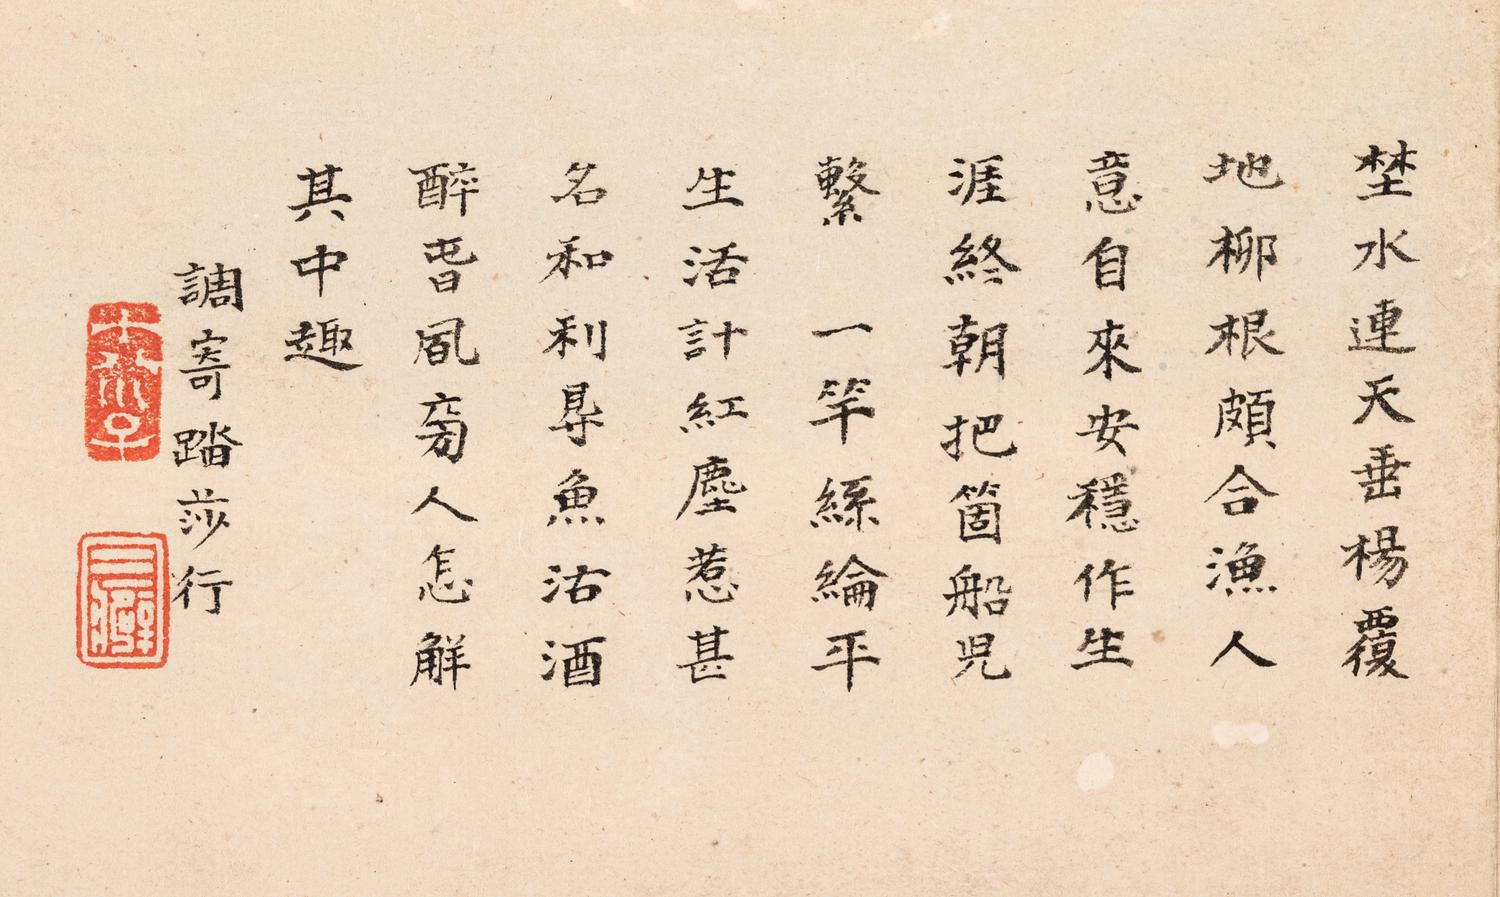 埜水連天垂楊覆
地柳根頗合漁人
意自來安穩作生
涯終朝把箇船児
繫　一竿絲綸平
生活計紅塵惹甚
名和利尋魚沽酒
醉旹旁人怎解
其中趣
調寄踏莎行